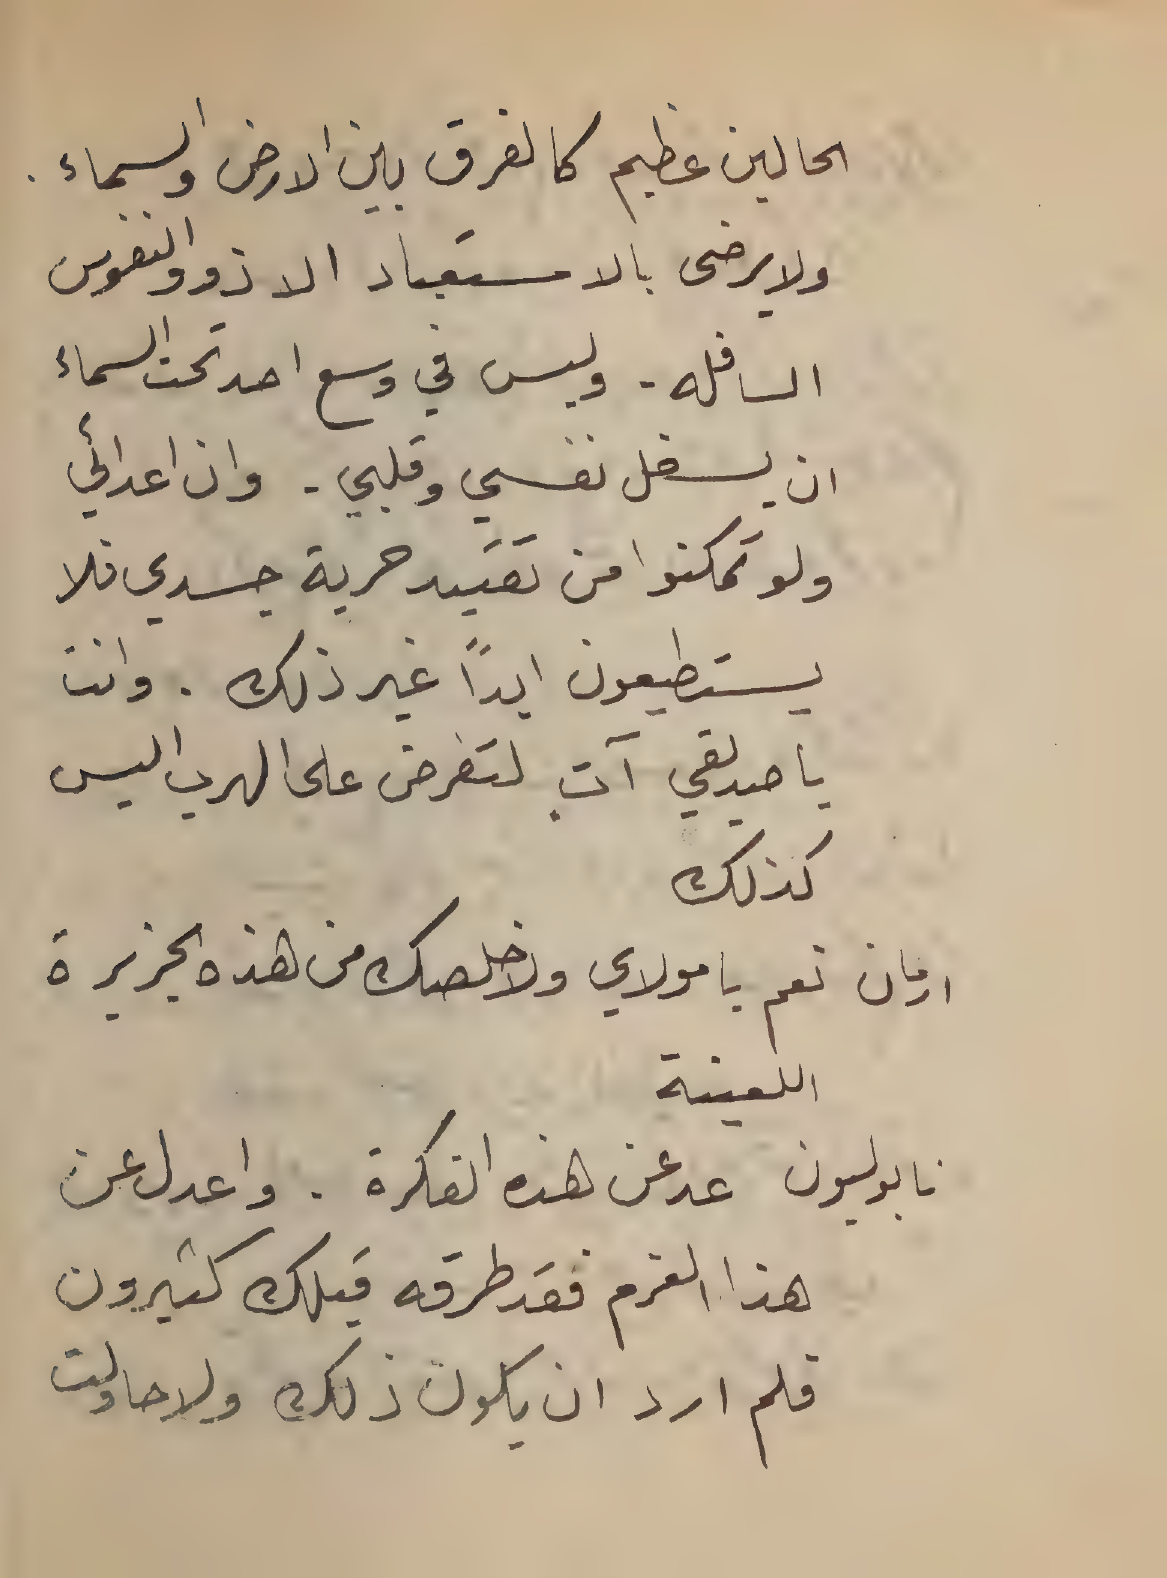 الحالين عظيم كالفرق بين الارض والسماء .
ولا يرضى بالاستعباد الا ذوو النفوس
السافله - وليس في وسع احد تحت السماء
ان يسفل نفسي وقلبي - وان اعدائي
ولو تمكنوا من تقييد حرية جسدي فلا
يستطيعون ابداً غير ذلك . وانت
يا صديقي آت لتعرض على الهرب اليس
كذلك
ارمان نعم يا مولاي ولاخلصك من هذه الجزيرة
اللعينة
نابوليون عد عن هذه الفكرة . واعدل عن
هذا العزم فقد طرقه قبلك كثيرون
فلم ارد ان يكون ذلك ولا حاولت